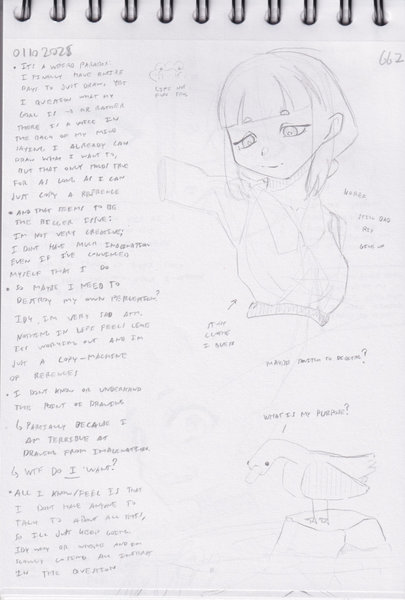 01102025
662
• It's a weird paradox.
I finally have entire
days to just draw, yet
I question what my
goal is → or rather
there is a voice in
the back of my mind
saying I already can
draw what I want to,
but that only holds true
for as long as I can
just copy a reference
• And that seems to be
the bigger issue:
I'm not very creative;
I don't have much imagination
even if I've convinced
myself that I do
• So maybe I need to
destroy my own perception?
Idk, I'm very sad atm.
Nothing in life feels like
it's working out and I'm
just a copy-machine
of references
• I don't know or understand
the point of drawing
↳ Partially because I
am terrible at
drawing from imagination
↳ WTF do I want?
• All I know/feel is that
I don't have anyone to
talk to about all this,
so I'll just keep going
idk why or where and I'm
slowly losing all interest
in the question
still bad
give up
it's a
clothe
I guess
Maybe switch to digital?
What is my purpose?